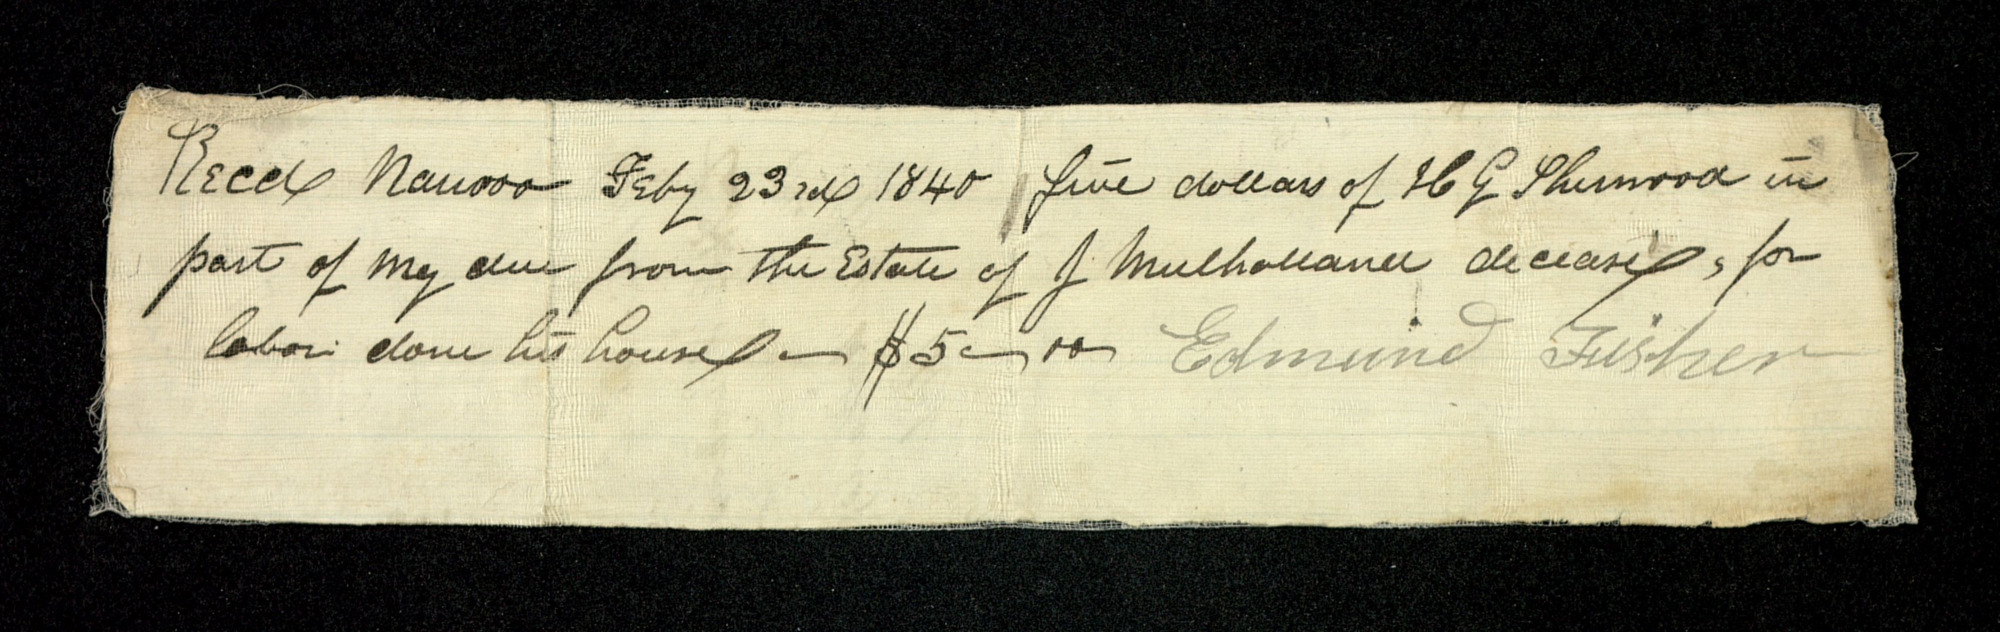 Recd Nauvoo Feby 23rd 1840 five dollars of H G Sherwood in
part of my due from the Estate of J Mulholland deceased, for
labor done his house — $5—00 Edmund Fisher